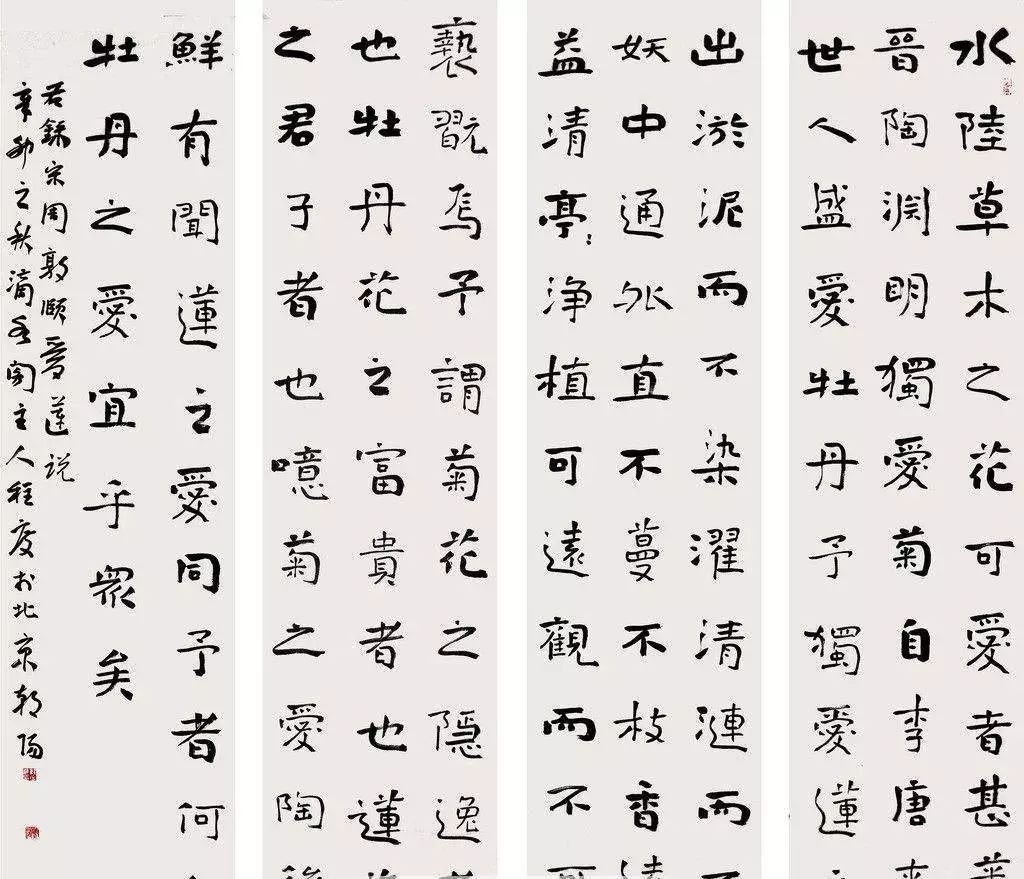 水陸草木之花可愛者甚
晉陶渊明獨愛菊自李唐来
世人盛愛牡丹予獨愛蓮
出淤泥而不染濯清漣而不
妖中通外直不蔓不枝香遠
益清亭〻浄植可遠觀而不可
褻翫焉予謂菊花之隠逸
也牡丹花之富貴者也蓮
之君子者也噫菊之愛陶後
鮮有聞蓮之愛同予者何
牡丹之愛宜乎眾矣
右錄宋周敦颐愛蓮说
辛卯之秋滴阁主人程度於北京朝陽